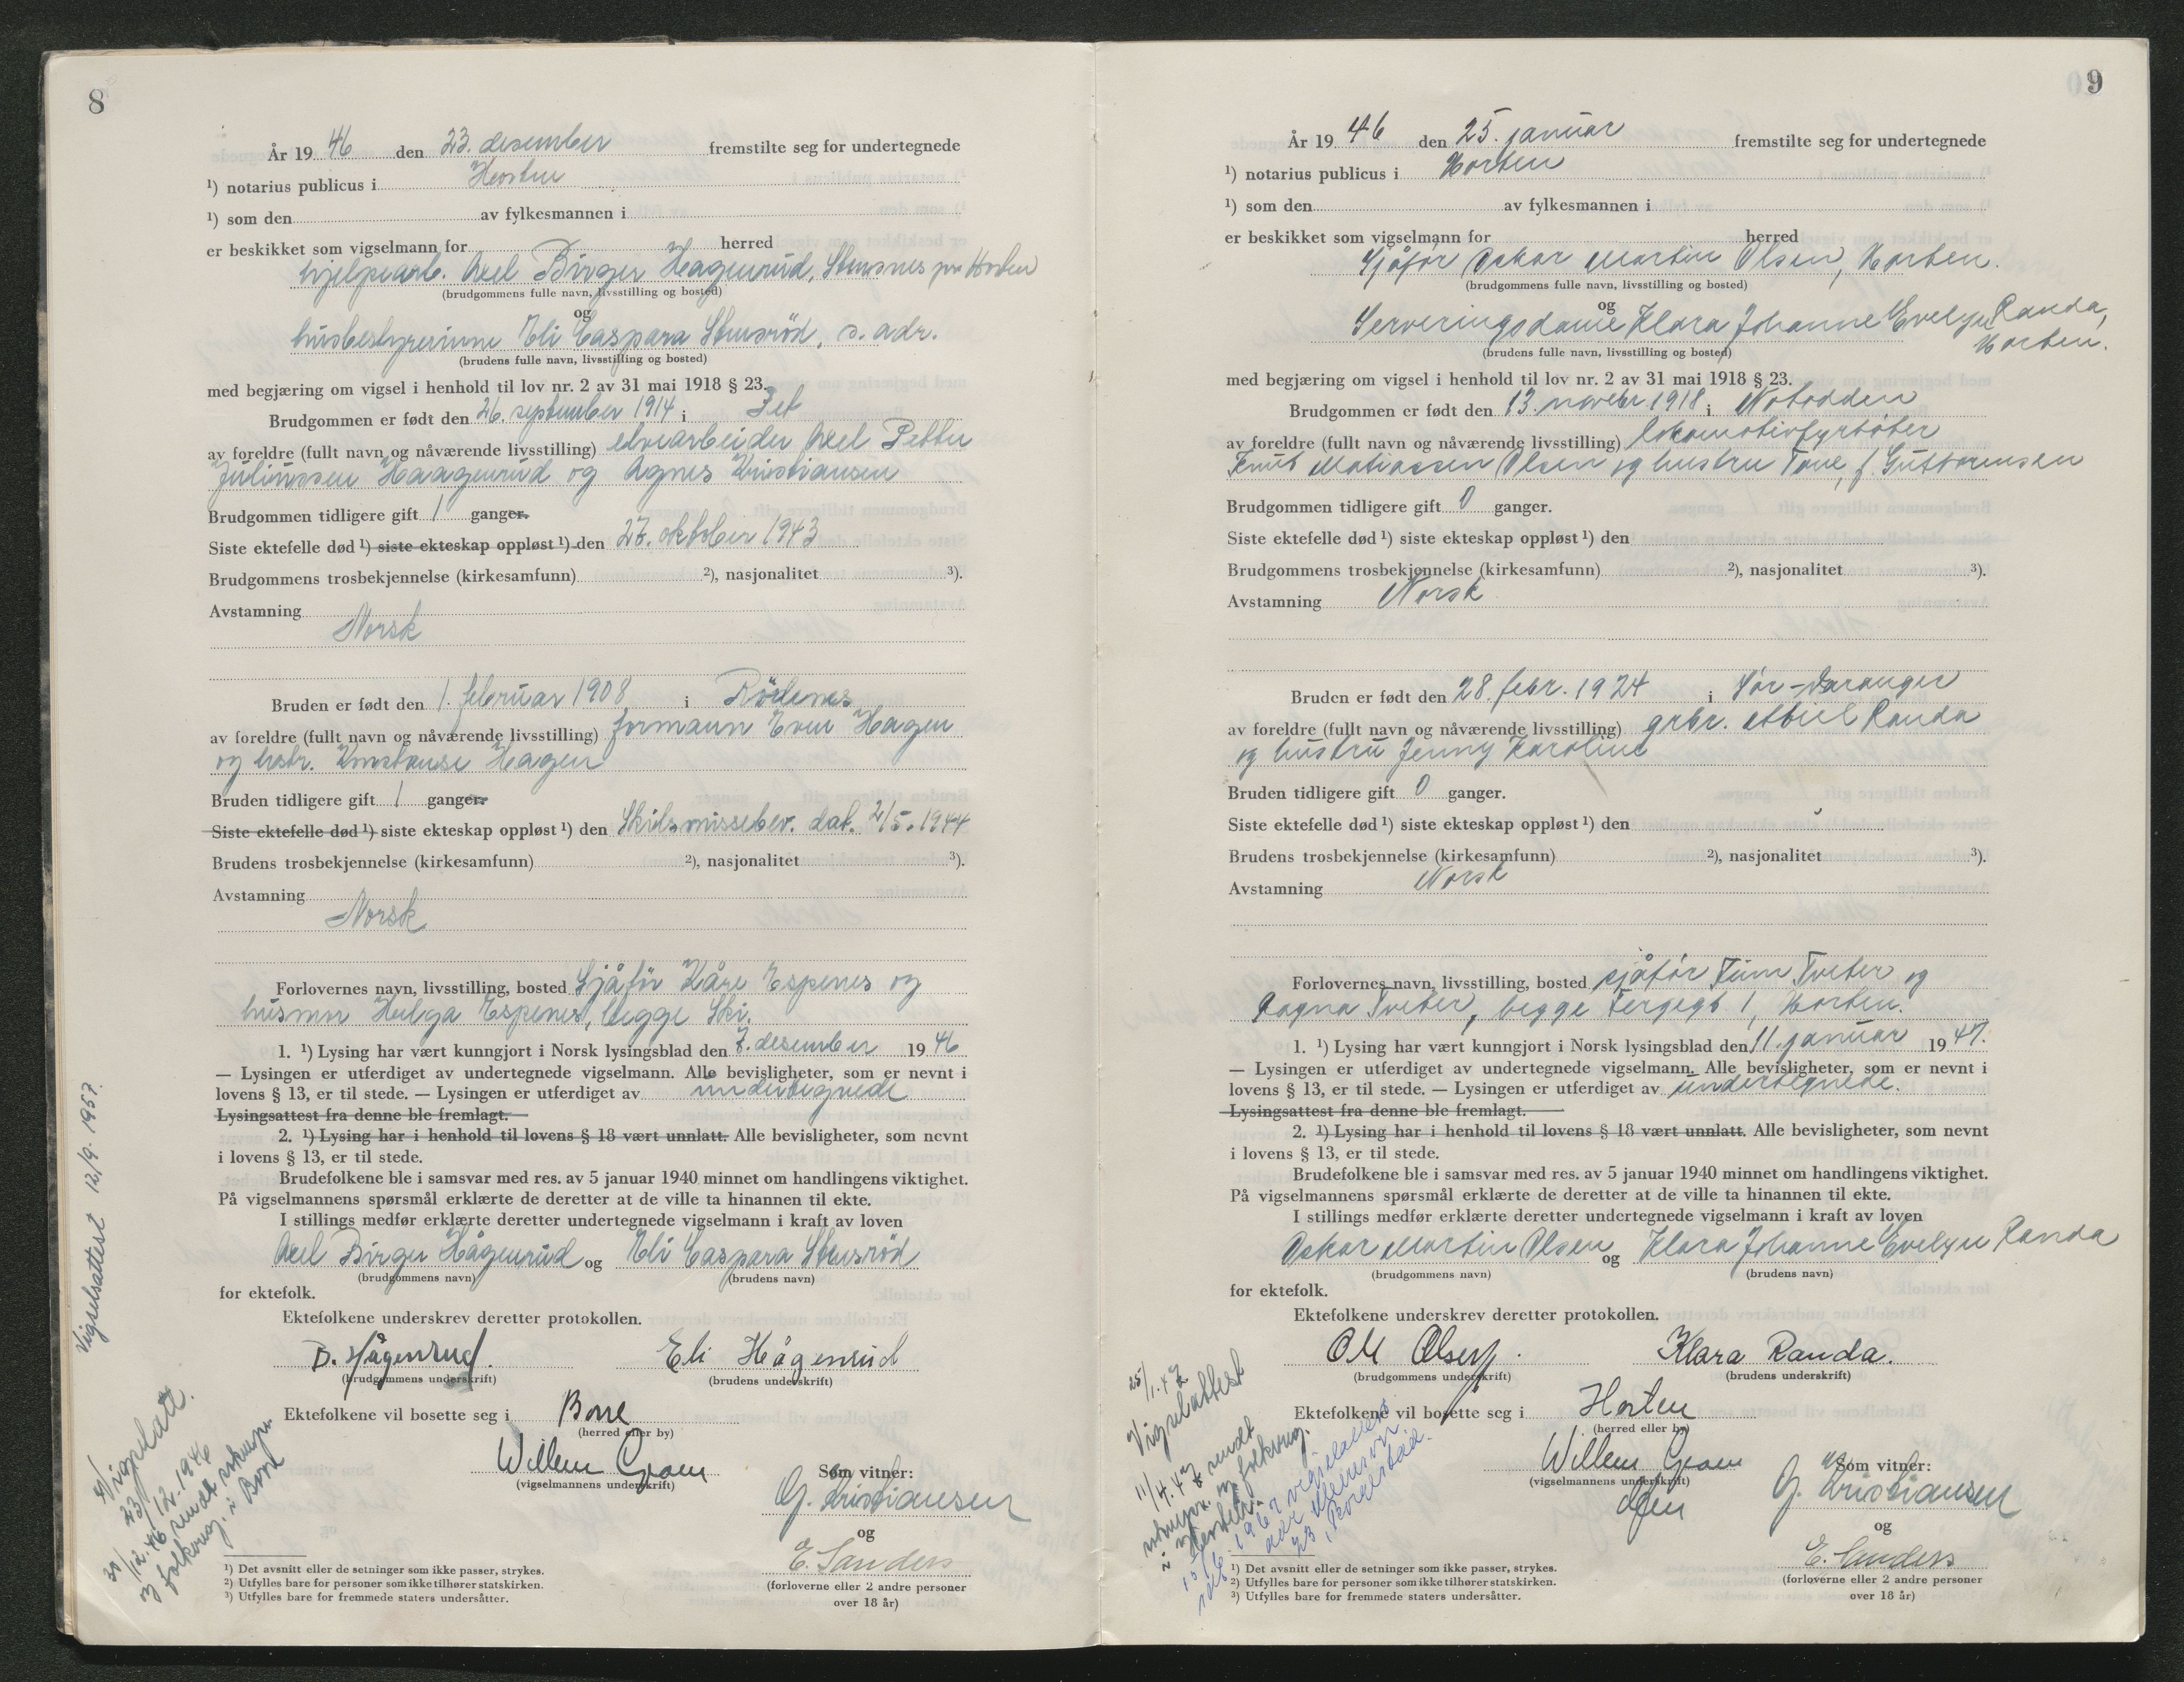 8
År 19 46 den 23. desember fremstilte seg for undertegnede
¹) notarius publicus i Horten
¹) som den av fylkesmannen i
er beskikket som vigselmann for herred
hjelpearb. Axel Birger Hagenrud, pr. Horten
(brudgommens fulle navn, livsstilling og bosted)
og
husbestyrerinne Eli Caspara Stensröd, s. adr.
(brudens fulle navn, livsstilling og bosted)
med begjæring om vigsel i henhold til lov nr. 2 av 31 mai 1918 § 23.
Brudgommen er født den 26. september 1914 i Fet
av foreldre (fullt navn og nåværende livsstilling) elvearbeider Axel Petter
Juliussen Haagenrud og Agnes Kristiansen
Brudgommen tidligere gift 1 ganger.
Siste ektefelle død ¹) siste ekteskap oppløst ¹) den 27. oktober 1943
Brudgommens trosbekjennelse (kirkesamfunn) ²), nasjonalitet ³).
Avstamning
Norsk
Bruden er født den 1. februar 1908 i Rödenes
av foreldre (fullt navn og nåværende livsstilling) formann Even Hagen
og hstr. Konstanse Hagen
Bruden tidligere gift 1 ganger.
Siste ektefelle død ¹) siste ekteskap oppløst ¹) den Skilsmissebev. dat. 2/5. 1944
Brudens trosbekjennelse (kirkesamfunn) ²), nasjonalitet ³).
Avstamning
Norsk
Forlovernes navn, livsstilling, bosted Sjåför Kåre Espenes og
husmor Helga Espenes, begge Ski.
1. ¹) Lysing har vært kunngjort i Norsk lysingsblad den 7. desember 19 46
— Lysingen er utferdiget av undertegnede vigselmann. Alle bevisligheter, som er nevnt i
lovens § 13, er til stede. — Lysingen er utferdiget av undertegnede
Lysingsattest fra denne ble fremlagt.
2. ¹) Lysing har i henhold til lovens § 18 vært unnlatt. Alle bevisligheter, som nevnt
i lovens § 13, er til stede.
Brudefolkene ble i samsvar med res. av 5 januar 1940 minnet om handlingens viktighet.
På vigselmannens spørsmål erklærte de deretter at de ville ta hinannen til ekte.
I stillings medfør erklærte deretter undertegnede vigselmann i kraft av loven
Axel Birger Hågenrud og Eli Caspara Stensröd
(brudgommens navn) (brudens navn)
for ektefolk.
Ektefolkene underskrev deretter protokollen.
B. Hågenrud. Eli Hågenrud
(brudgommens underskrift) (brudens underskrift)
Ektefolkene vil bosette seg i Borre
(herred eller by)
Willem Gram
(vigselmannens underskrift)
Som vitner:
G. Kristiansen
og
E. Sanders
(forloverne eller 2 andre personer
over 18 år)
¹) Det avsnitt eller de setninger som ikke passer, strykes.
²) Utfylles bare for personer som ikke tilhører statskirken.
³) Utfylles bare for fremmede staters undersåtter.
Vigselsattest 12/9. 1957.
Vigselatt.
23/12.1946
30/12.46 sendt soknepr.
og folkereg. i Borre
9
År 19 46 den 25. januar fremstilte seg for undertegnede
¹) notarius publicus i Horten
¹) som den av fylkesmannen i
er beskikket som vigselmann for herred
Sjåför Oskar Martin Olsen, Horten.
(brudgommens fulle navn, livsstilling og bosted)
og
Serveringsdame Klara Johanne Evelyn Randa,
Horten.
(brudens fulle navn, livsstilling og bosted)
med begjæring om vigsel i henhold til lov nr. 2 av 31 mai 1918 § 23.
Brudgommen er født den 13. novebr 1918 i Notodden
av foreldre (fullt navn og nåværende livsstilling) lokomotivfyrbøter
Knut Matiassen Olsen og hustru Tone, f. Guttormsen
Brudgommen tidligere gift 0 ganger.
Siste ektefelle død ¹) siste ekteskap oppløst ¹) den
Brudgommens trosbekjennelse (kirkesamfunn) ²), nasjonalitet ³).
Avstamning Norsk
Bruden er født den 28. febr. 1924 i Sør-Varanger
av foreldre (fullt navn og nåværende livsstilling) grbr. Abiel Randa
og hustru Jenny Karoline
Bruden tidligere gift 0 ganger.
Siste ektefelle død ¹) siste ekteskap oppløst ¹) den
Brudens trosbekjennelse (kirkesamfunn) ²), nasjonalitet ³).
Avstamning Norsk
Forlovernes navn, livsstilling, bosted sjåfør Finn Tveter og
Ragna Tveter, begge Fergegt 1, Horten.
1. ¹) Lysing har vært kunngjort i Norsk lysingsblad den 11. januar 19 47.
— Lysingen er utferdiget av undertegnede vigselmann. Alle bevisligheter, som er nevnt i
lovens § 13, er til stede. — Lysingen er utferdiget av undertegnede.
Lysingsattest fra denne ble fremlagt.
2. ¹) Lysing har i henhold til lovens § 18 vært unnlatt. Alle bevisligheter, som nevnt
i lovens § 13, er til stede.
Brudefolkene ble i samsvar med res. av 5 januar 1940 minnet om handlingens viktighet.
På vigselmannens spørsmål erklærte de deretter at de ville ta hinannen til ekte.
I stillings medfør erklærte deretter undertegnede vigselmann i kraft av loven
Oskar Martin Olsen og Klara Johanne Evelyn Randa
(brudgommens navn) (brudens navn)
for ektefolk.
Ektefolkene underskrev deretter protokollen.
O M Olsen. Klara Randa.
(brudgommens underskrift) (brudens underskrift)
Ektefolkene vil bosette seg i Horten
(herred eller by)
Willem Gram
(vigselmannens underskrift)
Som vitner:
G. Kristiansen
og
E. Sanders
(forloverne eller 2 andre personer
over 18 år)
25/1.47
Vigselattest
11/4.47 sendt
soknepr. og folkereg.
i Horten.
15/6.1967 vigselattest
¹) Det avsnitt eller de setninger som ikke passer, strykes.
²) Utfylles bare for personer som ikke tilhører statskirken.
³) Utfylles bare for fremmede staters undersåtter.